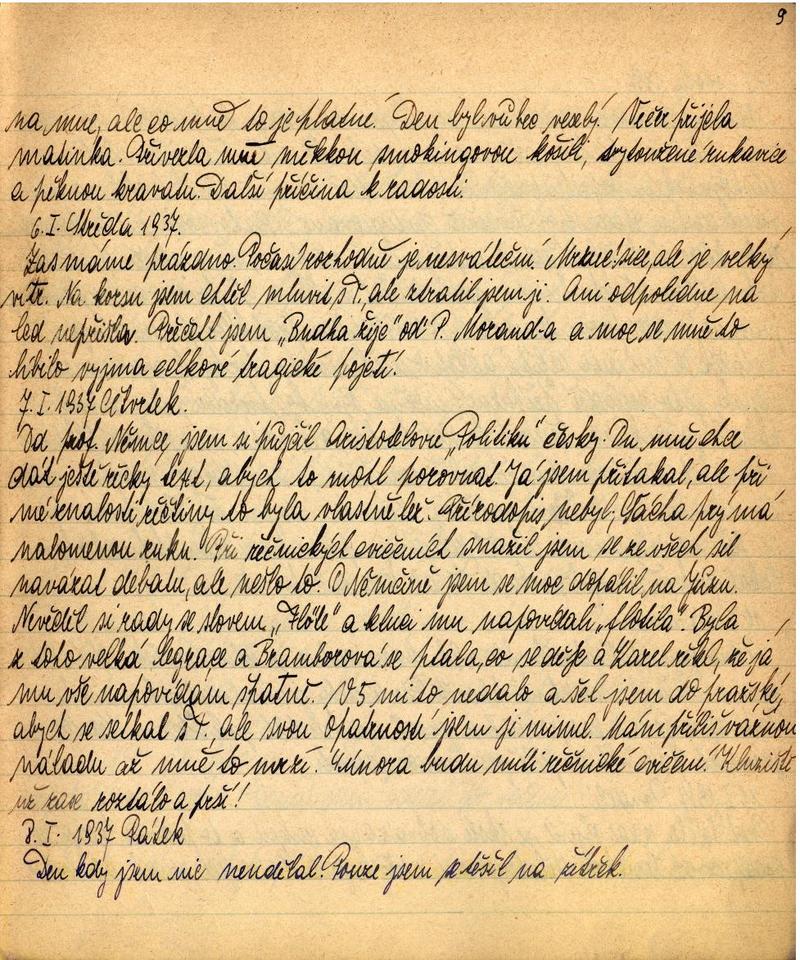 9
na mne, ale co mně to je platné. Den byl vůbec veselý. Večer přijela
matinka. Přivezla mně měkkou smokingovou košili, vytoužené rukavice
a pěknou kravatu. Další příčina k radosti.
6. I. Středa 1937.
Zas máme prázdno. Počasí rozhodně je nesváteční. Mrzne sice, ale je velký
vítr. Na korsu jsem chtěl mluvit s T., ale ztratil jsem ji. Ani odpoledne na
led nepřišla. Přečetl jsem „Budha žije" od P. Morand-a a moc se mně to
líbilo vyjma celkové tragické pojetí.
7. I. 1937 Čtvrtek.
Od prof. Němce jsem si půjčil Aristotelovu „Politiku" česky. On mně chce
dát ještě řecký text, abych to mohl porovnat. Já jsem přitakal, ale při
mé znalosti řečtiny to byla vlastně lež. Přírodopis nebyl, Gácha prý má
nalomenou ruku. Při řečnických cvičeních snažil jsem se ze všech sil
navázat debatu, ale nešlo to. V Němčině jsem se moc dopálil na Júzu.
Nevěděl si rady se slovem „Flöte" a kluci mu napovídali „flotila". Byla
z toho velká legrace a Bramborová se ptala, co se děje a Karel řekl, že já
mu vše napovídám špatně. V 5 mi to nedalo a šel jsem do pražské,
abych se setkal s T. ale svou opatrností jsem ji minul. Mám příliš vážnou
náladu až mně to mrzí. Února budu míti řečnické cvičení. Kluziště
už zase roztálo a prší!
8. I. 1937 Pátek
Den kdy jsem nic neudělal. Pouze jsem se těšil na zítřek.